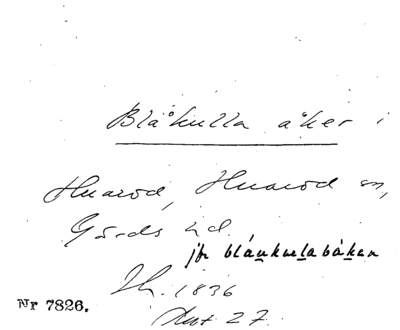 Blåkulla åker i
Huaröd, Huaröd sn,
Gärds hd.
jfr blåukulabåkan
Sh. 1836
Akt 27.
Nr 7826.